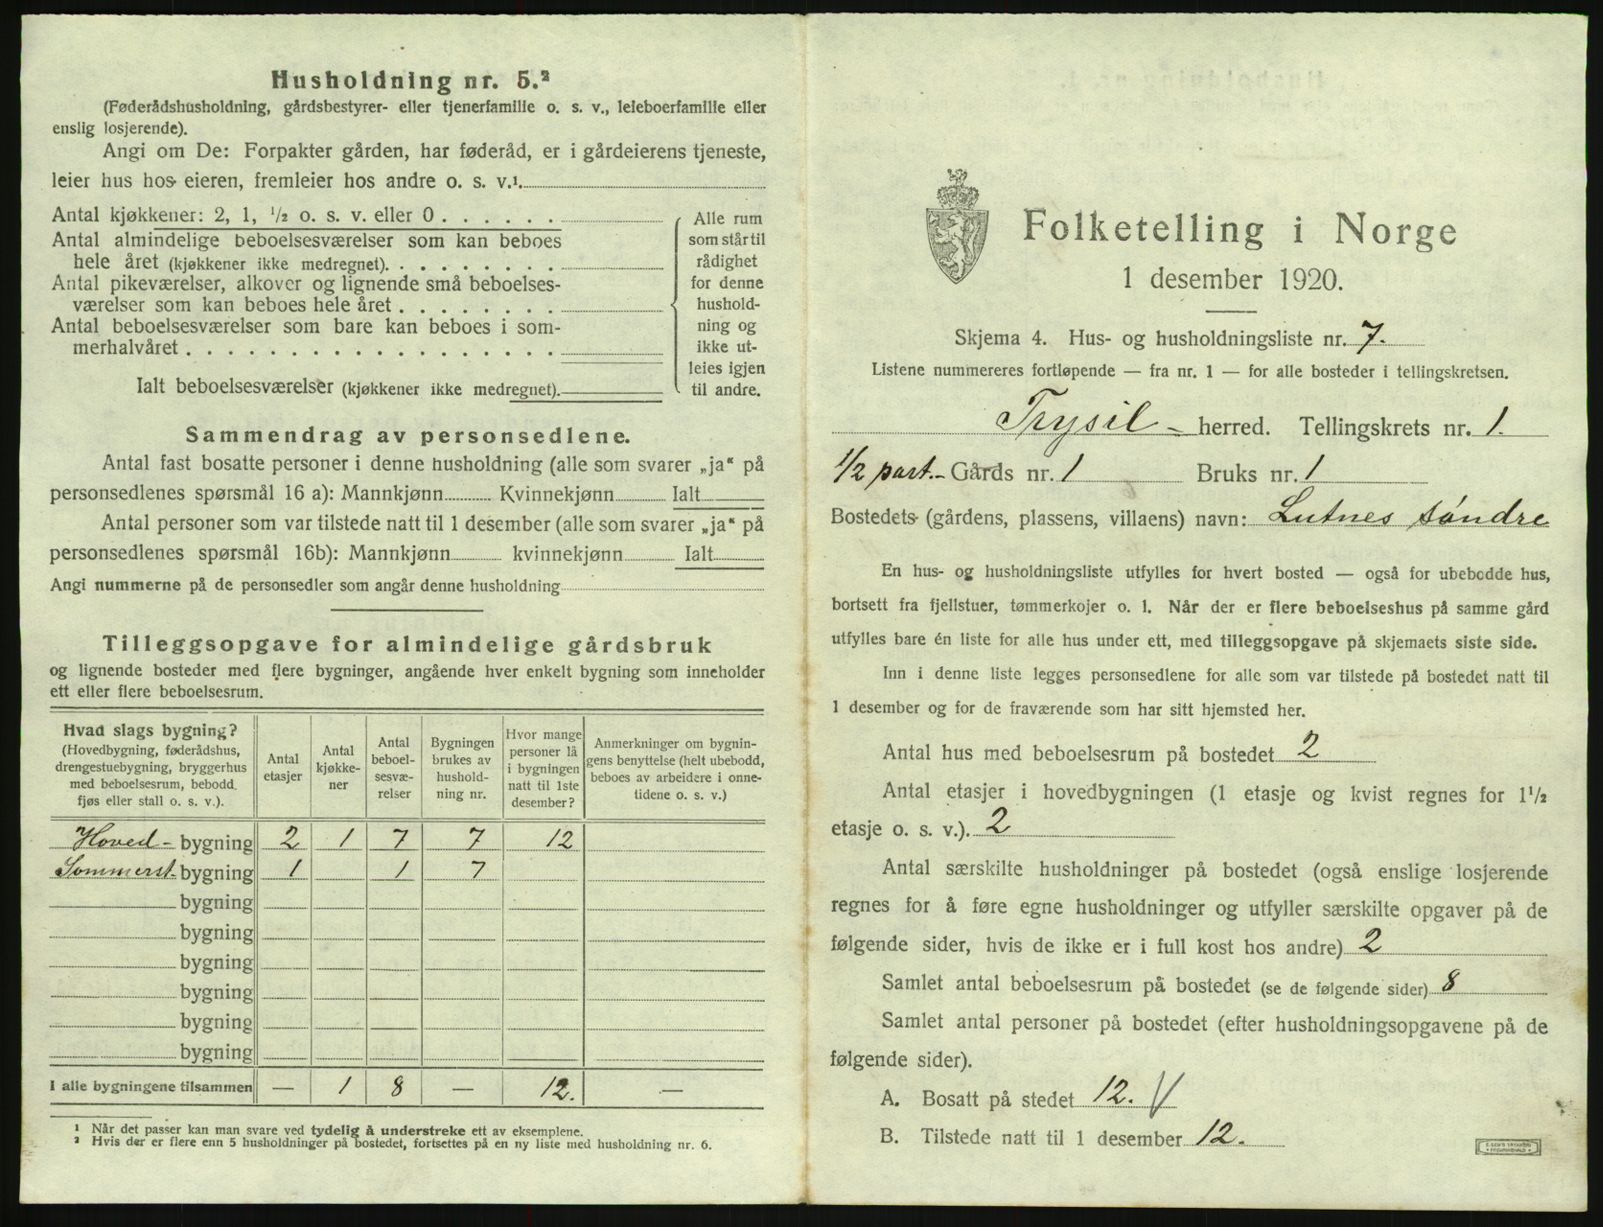 Husholdning nr. 5.²
(Føderådshusholdning, gårdsbestyrer- eller tjenerfamilie o. s. v., leieboerfamilie eller
enslig losjerende).
Angi om De: Forpakter gården, har føderåd, er i gårdeierens tjeneste,
leier hus hos eieren, fremleier hos andre o. s. v.¹
Antal kjøkkener: 2, 1, ½ o. s. v. eller 0
Antal almindelige beboelsesværelser som kan beboes
hele året (kjøkkener ikke medregnet).
Antal pikeværelser, alkover og lignende små beboelses-
værelser som kan beboes hele året
Antal beboelsesværelser som bare kan beboes i som-
merhalvåret
Ialt beboelsesværelser (kjøkkener ikke medregnet).
Alle rum
som står til
rådighet
for denne
hushold-
ning og
ikke ut-
leies igjen
til andre.
Sammendrag av personsedlene.
Antal fast bosatte personer i denne husholdning (alle som svarer „ja“ på
personsedlenes spørsmål 16 a): Mannkjønn Kvinnekjønn Ialt
Antal personer som var tilstede natt til 1 desember (alle som svarer „ja“ på
personsedlenes spørsmål 16b): Mannkjønn kvinnekjønn Ialt
Angi nummerne på de personsedler som angår denne husholdning
Tilleggsopgave for almindelige gårdsbruk
og lignende bosteder med flere bygninger, angående hver enkelt bygning som inneholder
ett eller flere beboelsesrum.
Hvad slags bygning?
(Hovedbygning, føderådshus,
drengestuebygning, bryggerhus
med beboelsesrum, bebodd
fjøs eller stall o. s. v.).
Antal
etasjer
Antal
kjøkke-
ner
Antal
beboel-
sesvæ-
relser
Bygningen
brukes av
hushold-
ning nr.
Hvor mange
personer lå
i bygningen
natt til 1ste
desember?
Anmerkninger om bygnin-
gens benyttelse (helt ubebodd,
beboes av arbeidere i onne-
tidene o. s. v.)
Hoved- bygning 2 1 7 7 12
Sommerst- bygning 1 1 7
bygning
bygning
bygning
bygning
bygning
bygning
I alle bygningene tilsammen — 1 8 — 12. —
¹ Når det passer kan man svare ved tydelig å understreke ett av eksemplene.
² Hvis der er flere enn 5 husholdninger på bostedet, fortsettes på en ny liste med husholdning nr. 6.
Folketelling i Norge
1 desember 1920.
Skjema 4. Hus- og husholdningsliste nr. 7.
Listene nummereres fortløpende — fra nr. 1 — for alle bosteder i tellingskretsen.
Trysil - herred. Tellingskrets nr. 1.
1/2 part.- Gårds nr. 1 Bruks nr. 1
Bostedets (gårdens, plassens, villaens) navn: Lutnes söndre
En hus- og husholdningsliste utfylles for hvert bosted — også for ubebodde hus,
bortsett fra fjellstuer, tømmerkojer o. l. Når der er flere beboelseshus på samme gård
utfylles bare én liste for alle hus under ett, med tilleggsopgave på skjemaets siste side.
Inn i denne liste legges personsedlene for alle som var tilstede på bostedet natt til
1 desember og for de fraværende som har sitt hjemsted her.
Antal hus med beboelsesrum på bostedet 2
Antal etasjer i hovedbygningen (1 etasje og kvist regnes for 1½
etasje o. s. v.). 2
Antal særskilte husholdninger på bostedet (også enslige losjerende
regnes for å føre egne husholdninger og utfyller særskilte opgaver på de
følgende sider, hvis de ikke er i full kost hos andre) 2
Samlet antal beboelsesrum på bostedet (se de følgende sider) 8
Samlet antal personer på bostedet (efter husholdningsopgavene på de
følgende sider).
A. Bosatt på stedet 12. √
B. Tilstede natt til 1 desember 12.